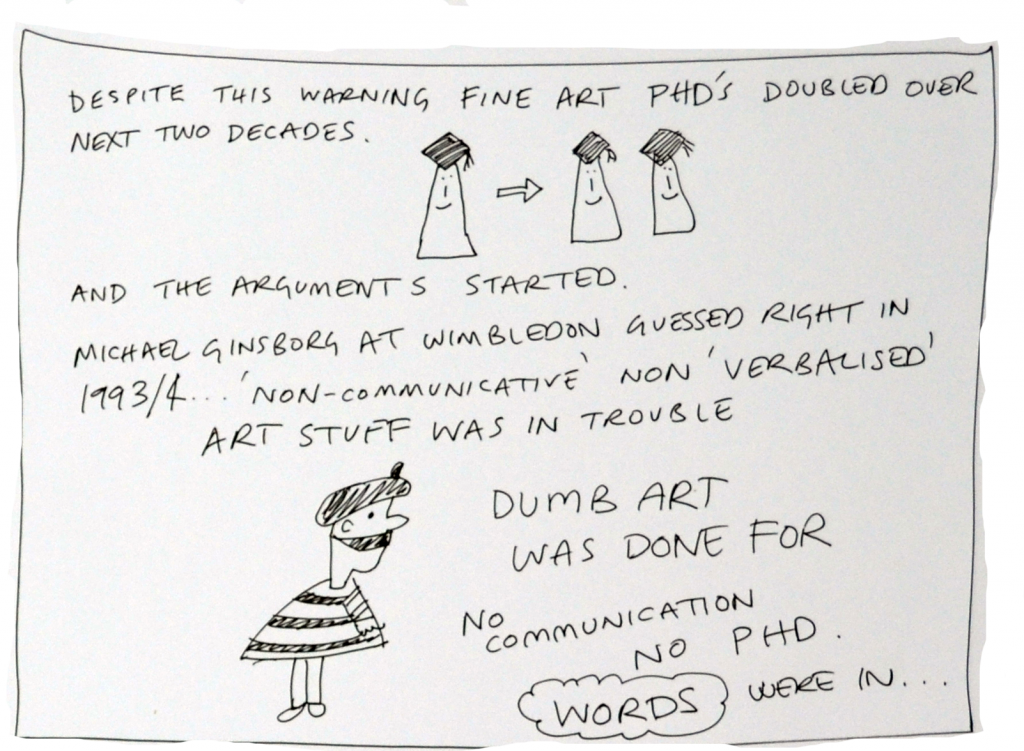 DESPITE THIS WARNING FINE ART PHD'S DOUBLED OVER
NEXT TWO DECADES.
AND THE ARGUMENTS STARTED.
MICHAEL GINSBORG AT WIMBLEDON GUESSED RIGHT IN
1993/4... 'NON-COMMUNICATIVE' NON 'VERBALISED'
ART STUFF WAS IN TROUBLE
DUMB ART
WAS DONE FOR
NO
COMMUNICATION
NO PHD.
WORDS WERE IN...